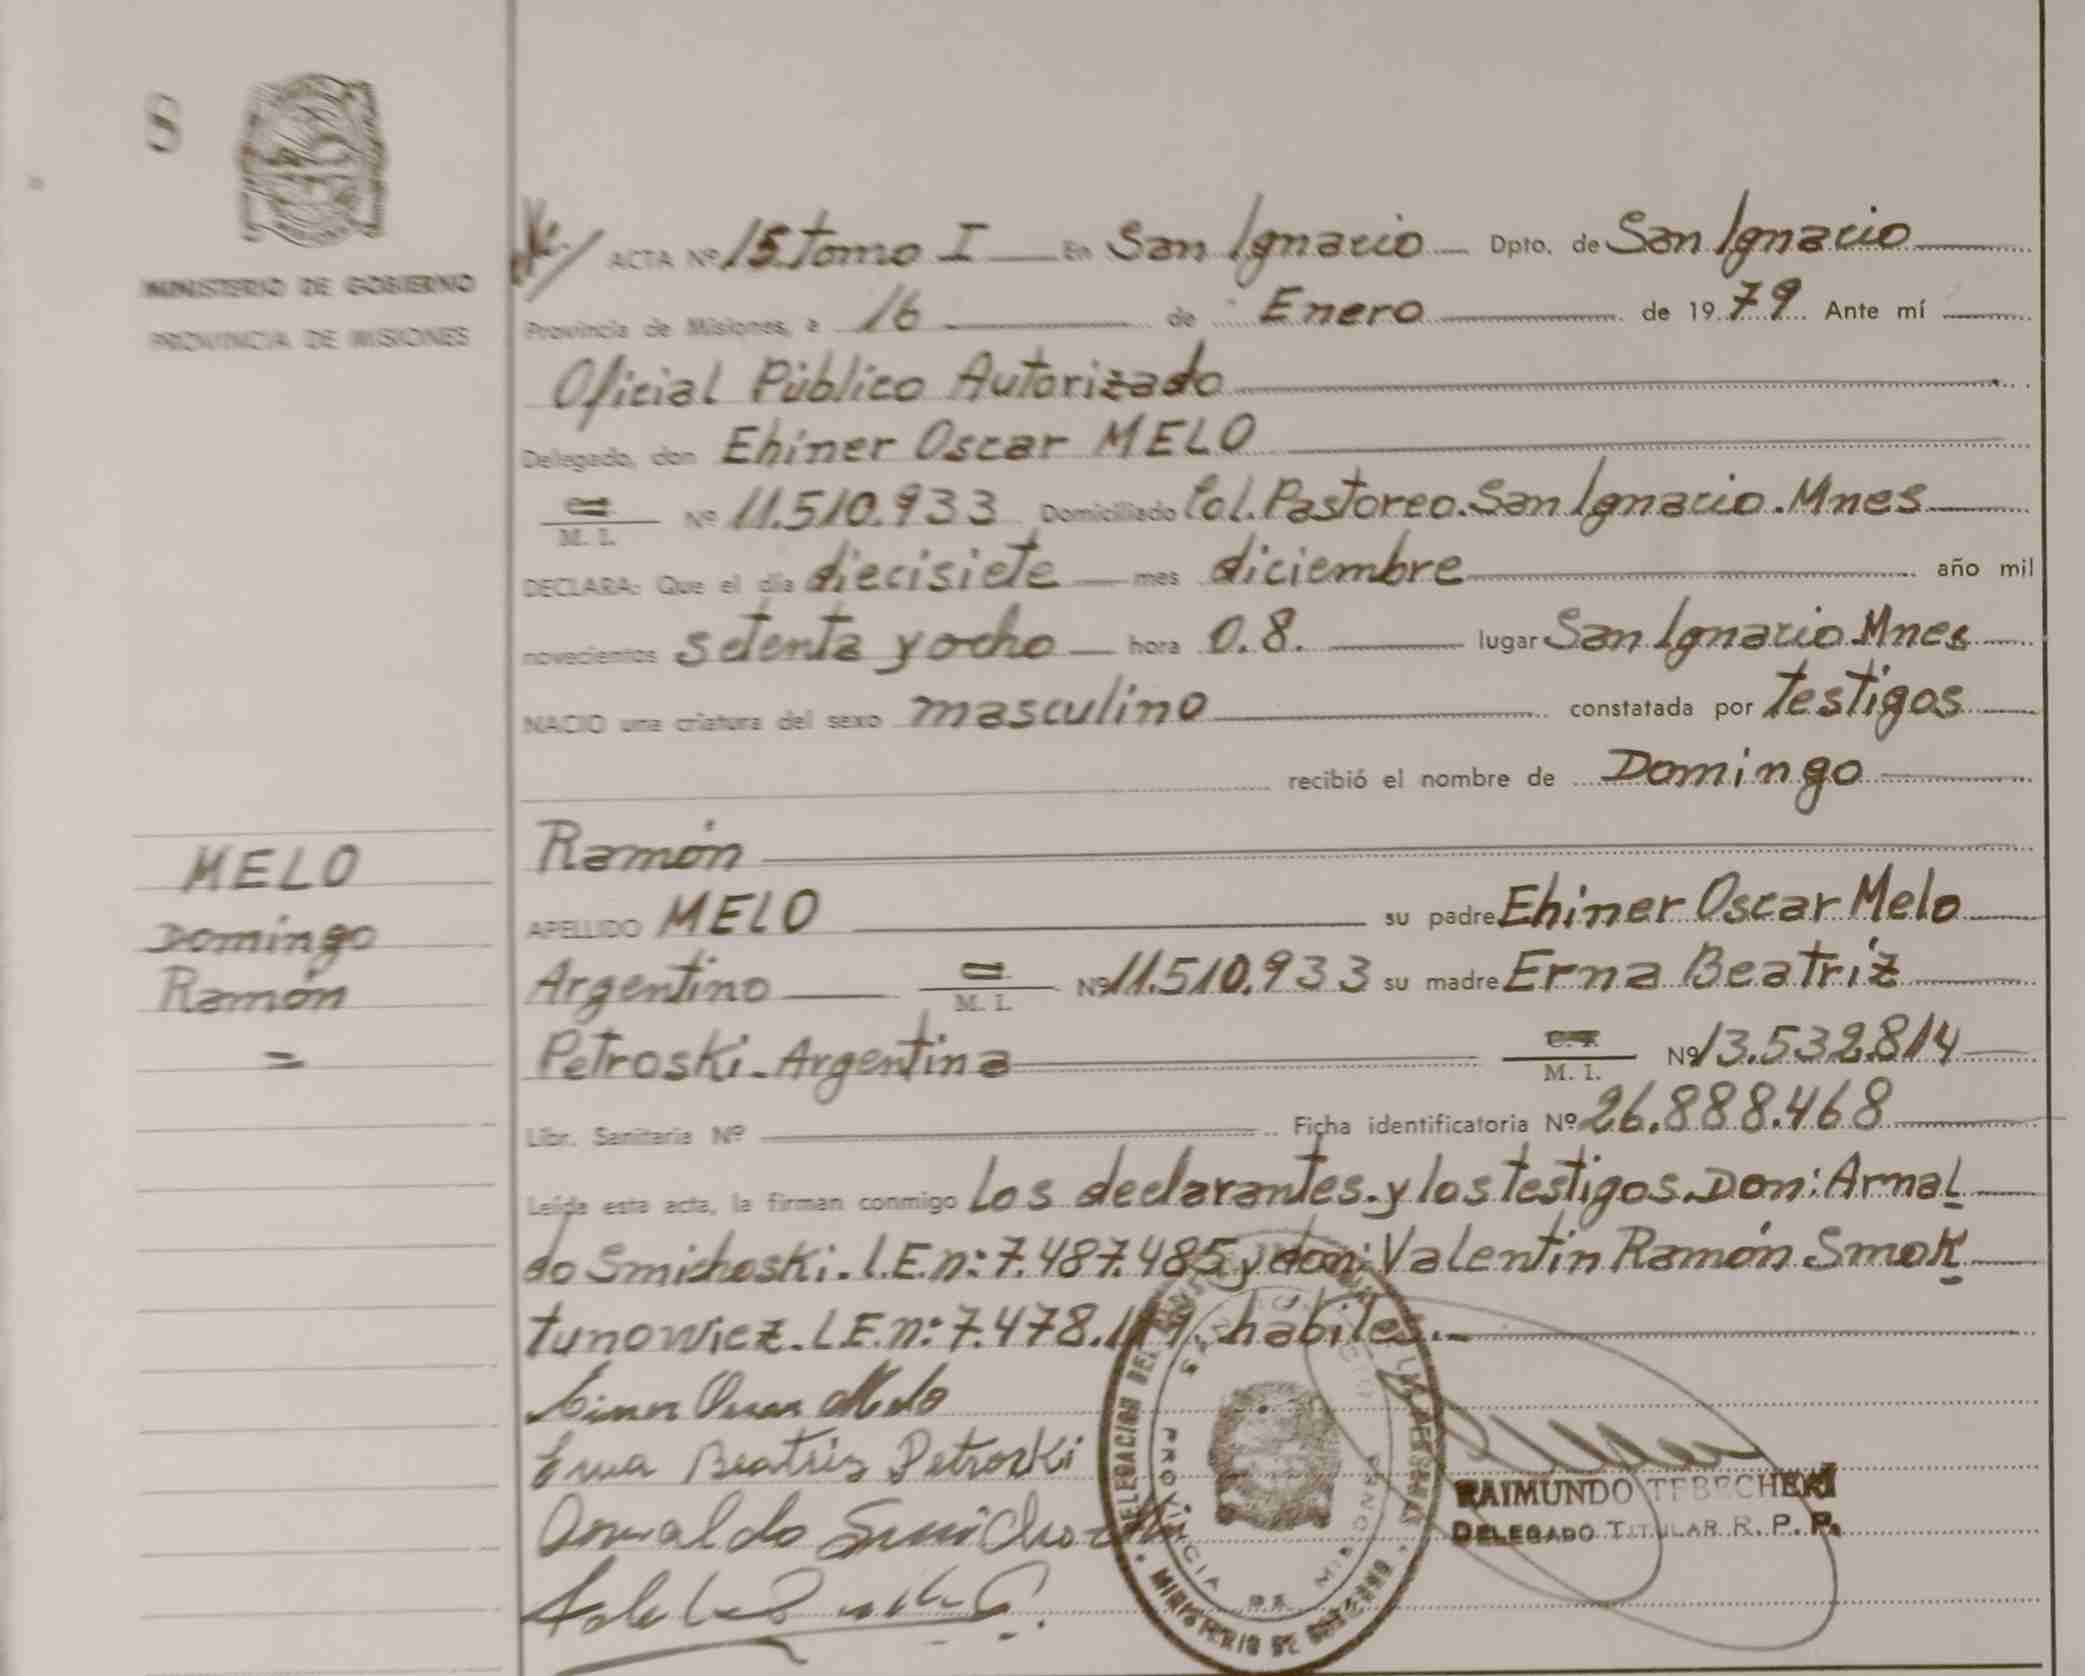 8
MINISTERIO DE GOBIERNO
PROVINCIA DE MISIONES
ACTA Nº 15 Tomo I En San Ignacio Dpto. de San Ignacio
Provincia de Misiones, a 16 de Enero de 1979 Ante mí
Oficial Público Autorizado
Delegado, don Ehiner Oscar MELO
M. I. Nº 11.510.933 Domiciliado Col. Pastoreo. San Ignacio. Mnes
DECLARA: Que el día diecisiete mes diciembre año mil
novecientos setenta y ocho hora 0.8. lugar San Ignacio Mnes
NACIO una criatura del sexo masculino constatada por testigos
recibió el nombre de Domingo
Ramón
APELLIDO MELO su padre Ehiner Oscar Melo
Argentino M. I. Nº 11.510.933 su madre Erna Beatriz
Petroski. Argentina M. I. Nº 13.532.814
Libr. Sanitaria Nº Ficha identificatoria Nº 26.888.468
Leída esta acta, la firman conmigo los declarantes. y los testigos. Don: Arnal
do Smichoski. L.E.n: 7.487.485 y don: Valentin Ramón Smok
tunowicz. L.E.n: 7.478. habiles.
MELO
Domingo
Ramón
=
Oscar Melo
Erna Beatriz Petroski
RAIMUNDO TEBECHERI
DELEGADO TITULAR R. P. P.
PROVINCIA DE MISIONES
MINISTERIO DE GOBIERNO